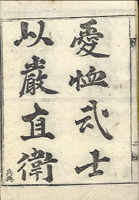 愛恤武士
以嚴直衛
兵典